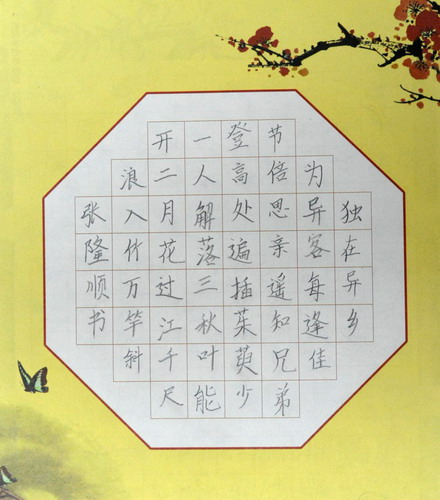 独在异乡
为异客每逢佳
节倍思亲遥知兄弟
登高处遍插茱萸少
一人解落三秋叶能
开二月花过江千尺
浪入竹万竿斜
张隆顺书